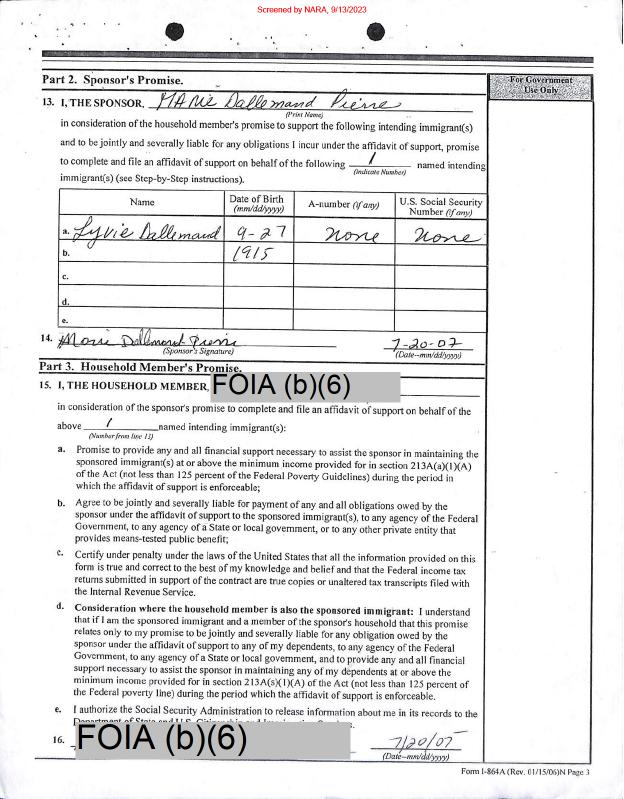 Screened by NARA, 9/13/2023
Part 2. Sponsor's Promise.
For Government
Use Only
13. I, THE SPONSOR, MARie Dallemand Pierre
(Print Name)
in consideration of the household member's promise to support the following intending immigrant(s)
and to be jointly and severally liable for any obligations I incur under the affidavit of support, promise
to complete and file an affidavit of support on behalf of the following 1 named intending
(Indicate Number)
immigrant(s) (see Step-by-Step instructions).
Name Date of Birth (mm/dd/yyyy) A-number (if any) U.S. Social Security Number (if any)
a. Lyvie Dallemand 9-27 None None
b. 1915
c.
d.
e.
14. Marie Dallemand Pierre 7-20-07
(Sponsor's Signature) (Date--mm/dd/yyyy)
Part 3. Household Member's Promise.
15. I, THE HOUSEHOLD MEMBER, FOIA (b)(6)
in consideration of the sponsor's promise to complete and file an affidavit of support on behalf of the
above 1 named intending immigrant(s):
(Number from line 13)
a. Promise to provide any and all financial support necessary to assist the sponsor in maintaining the
sponsored immigrant(s) at or above the minimum income provided for in section 213A(a)(1)(A)
of the Act (not less than 125 percent of the Federal Poverty Guidelines) during the period in
which the affidavit of support is enforceable;
b. Agree to be jointly and severally liable for payment of any and all obligations owed by the
sponsor under the affidavit of support to the sponsored immigrant(s), to any agency of the Federal
Government, to any agency of a State or local government, or to any other private entity that
provides means-tested public benefit;
c. Certify under penalty under the laws of the United States that all the information provided on this
form is true and correct to the best of my knowledge and belief and that the Federal income tax
returns submitted in support of the contract are true copies or unaltered tax transcripts filed with
the Internal Revenue Service.
d. Consideration where the household member is also the sponsored immigrant: I understand
that if I am the sponsored immigrant and a member of the sponsor's household that this promise
relates only to my promise to be jointly and severally liable for any obligation owed by the
sponsor under the affidavit of support to any of my dependents, to any agency of the Federal
Government, to any agency of a State or local government, and to provide any and all financial
support necessary to assist the sponsor in maintaining any of my dependents at or above the
minimum income provided for in section 213A(s)(1)(A) of the Act (not less than 125 percent of
the Federal poverty line) during the period which the affidavit of support is enforceable.
e. I authorize the Social Security Administration to release information about me in its records to the
Department of State and U.S.
16. FOIA (b)(6) 7/20/07
(Date--mm/dd/yyyy)
Form I-864A (Rev. 01/15/06)N Page 3